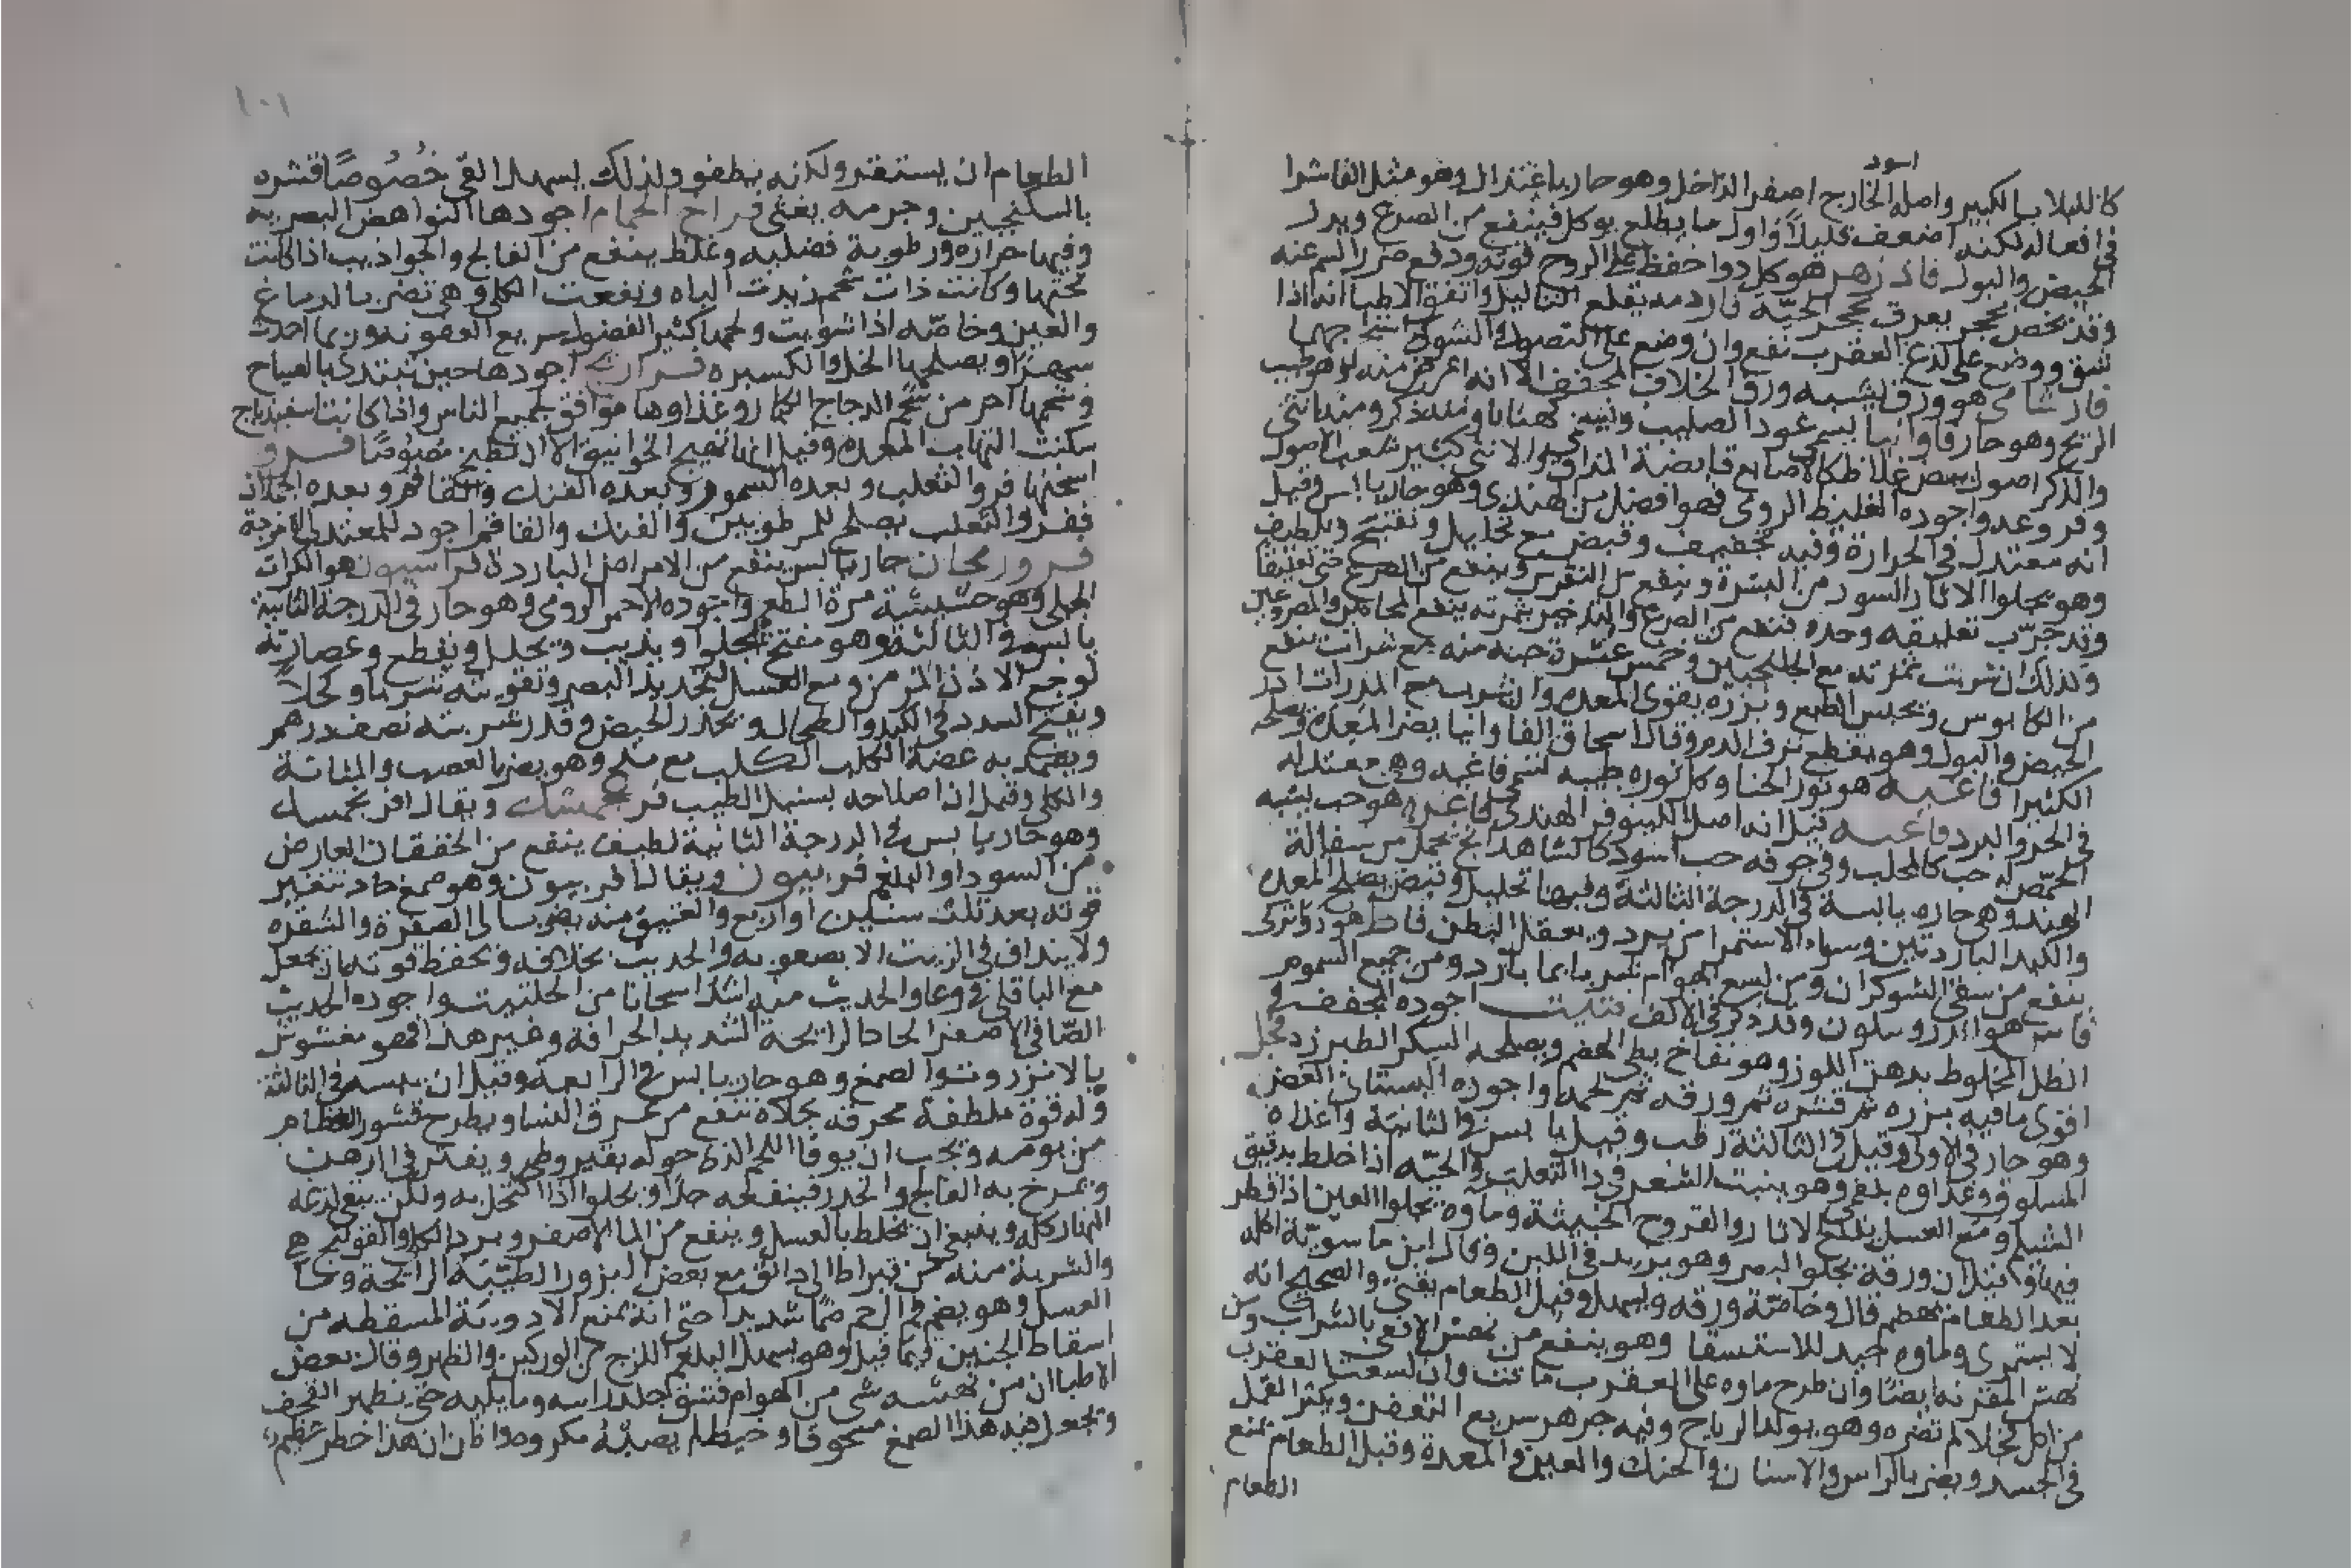 اسود
كاللبلاب الكبير واصله الخارج اصفر الداخل وهو حار باعتدال وهو مثل الفاشرا
في افعاله لكنه اضعف قليلاً واول ما يطلع يوكل فينفع من الصرع ويدر
الحيض والبول فادزهر هو كل دوا حفظ على الروح قوته ودفع ضرر السم عنه
وقد يخص بحجر يعرف بحجر الحيّة بارد مه يقلع الثاليل واتفق الاطبا انه اذا
شق ووضع على لذع العقرب نفع وان وضع على النصول والشوك جبهما
الريح وهو حار فاوانيا يسمى عود الصليب ومنه ذكر ومنه انثى
والذكر اصول بيض غلاظ كالاصابع قابضة المذاق والانثى كثير شعب الاصول
وفروعه واجوده الغليظ الرومى فهو افضل من هندى وهو حار يابس وقيل
انه معتدل في الحرارة وفيه تجفيف وقبض مع تحليل وتفتيح وتلطيف
وهو يجلوا الاثار السود من البشرة وينفع من النقرس وينفع من الصرع حتى تعليقا
وقد جرّب تعليقه وحده فنفع من الصرع والتدخين بثمرته ينفع المجانين والمصروعين
وكذلك ان شربت ثمرته مع الجلنجبين وخمس عشرة حبه منه مع شراب ينفع
من الكابوس ويحبس الطبع وبزره يقوى المعده وان شرب مع المدرات ادر
الحيض والبول وهو يقطع نزف الدم وقال اسحاق الفاوانيا يضر المعده ويصلحه
الكثيرا فاغيه هو نور الحنا وكل نوره طيبه تسمى فاغيه وهى معتدله
في الحر والبرد فاغيه قيل انه اصل اللينوفر الهندى فاغره هو حب يشبه
الحمّص له حب كالمحلب وفي جوفه حب اسود كالشاهدانج يحمل من سفالة
الهند وهى حاره يابسة في الدرجة الثالثة وفيها تحليل وقبض يصلح المعده
والكبد الباردتين وسوء الاستمرا من برد ويعقل البطن
ينفع من سقى الشوكران ومن لسع الهوام شربا بما بارد ومن جميع السموم
اجوده المجفف في
الظل المخلوط بدهن اللوز وهو نفاخ بطى الهضم ويصلحه السكر الطبرزد فجل
اقوى ما فيه بزره ثم قشره ثم ورقه ثم لحمه واجوده البستاني الغض
وهو حار في الاولى وقيل في الثالثة رطب وقيل يابس في الثانية واغذاه
المسلوق وغذاوه بلغمى وهو ينبت الشعر في دا الثعلب والحيّه اذا خلط بدقيق
الشيلم ومع العسل يقلع الاثار والقروح الخبيثة وماوه يجلوا العين اذا قطر
فيها وقيل ان ورقه يجلوا البصر وهو يزيد في اللبن وقال ابن ماسويّة اكله
بعد الطعام يهضم قال وخاصّة ورقه ويسهل وقبل الطعام يقئ والصحيح انه
لا يستمرى وماوه جيد للاستسقا وهو ينفع من نهش الافعى بالشراب ومن
نهش المقرنه ايضًا وان طرح ماوه على العقرب ماتت وان لسعت العقرب
من اكل فجلا لم تضره وهو يولد الرياح وفيه جوهر سريع التعفن ويكثر القمل
في الجسد ويضر بالراس والاسنان والحنك والعين والمعدة وقبل الطعام يمنع
الطعام
١٠١
الطعام ان يستقر ولكنه يطفو ولذلك يسهل القى خُصُوصًا قشره
بالسكنجبين وجرمه يغثى فراخ الحمام اجودها النواهض البصريه
وفيها حراره ورطوبة فضليه وغلظ ينفع من الفالج والجواذيب اذا كانت
تحتها وكانت ذات شحم زيدت الباه ونفعت الكلى وهى تضر بالدماغ
والعين وخاصّه اذا شويت ولحمها كثير الفضول سريع العفونه وربما احدث
سهرًا ويصلحها الخل والكسبره فراريج اجودها حين تبتدى بالصياح
وشحمها احر من شحم الدجاج الكبار وغذاوها موافق لجميع الناس واذا كانت اسفيدباج
سكنت التهاب المعده وقيل انها تهيج الخوانيق الا ان تطبخ مصُوصًا فرو
اسخنها فرو الثعلب وبعده السمور وبعده الفنك والقاقم وبعده الحملان
ففرو الثعلب يصلح للمرطوبين والفنك والقاقم اجود للمعتدلي الامزجة
فرورمجان حار يابس ينفع من الامراض الباردة فراسيون هو الكراث
الجبلى وهو حشيشة مرة الطعم واجوده الاحمر الرومى وهو حار في الدرجة الثانية
يابس في الثالثة وهو مفتح يجلوا ويذيب ويحلل ويقطع وعصارته
لوجع الاذن المزمن ومع العسل لتحديد البصر وتقويته شربا وكحلاً
ويفتح السدد في الكبد والطحال ويحدر الحيض وقدر شربته نصف درهم
ويضمد به عضة الكلب الكلب مع ملح وهو يضر بالعصب والمثانة
والكلى وقيل ان اصلاحه بسنبل الطيب فرنجمشك ويقال افرنجمسك
وهو حار يابس في الدرجة الثانية لطيف ينفع من الخفقان العارض
من السودا والبلغم فربيون ويقال افربيون وهو صمغ حاد تتغير
قوته بعد ثلث سنين او اربع والعتيق منه يضرب الى الصفرة والشقره
ولا ينداف في الزيت الا بصعوبه والحديث بخلافه وتحفظ قوته بان يجعل
مع الباقلى في وعا والحديث منه اشد اسخانا من الحلتيت واجوده الحديث
الصّافي الاصفر الحاد الرايحة الشديد الحرافة وغير هذا فهو مغشوش
بالانزروت والصمغ وهو حار يابس في الرابعه وقيل ان يبسه في الثالثة
وله قوة ملطفة محرقه جلاة تنفع من عرق النسا ويطرح قشور العظام
من يومه ويجب ان يوقا اللحم الذى حوله بقيروطى ويفتر في الدهن
ويمرخ به الفالج والخدر فينفعه جدًا ويجلوا اذا اكتحل به ولكن يبقى لذعه
النهار كله وينبغى ان يخلط بالعسل وينفع من الما الاصفر وبرد الكلى والقولنج
والشربة منه من قيراط الى دانق مع بعض البزور الطيّبة الرايحة وما
العسل وهو يضم فم الرحم ضمًا شديدا حتى انه يمنع الادوية المسقطه من
اسقاط الجنين فيما قيل وهو يسهل البلغم اللزج من الوركين والظهر وقال بعض
الاطبا ان من نهشه شى من الهوام فشق جلد راسه وما يليه حتى يظهر القحف
وتجعل فيه هذا الصمغ مسحوقا وخيط لم يصبه مكروه واظن ان هذا خطر عظيم